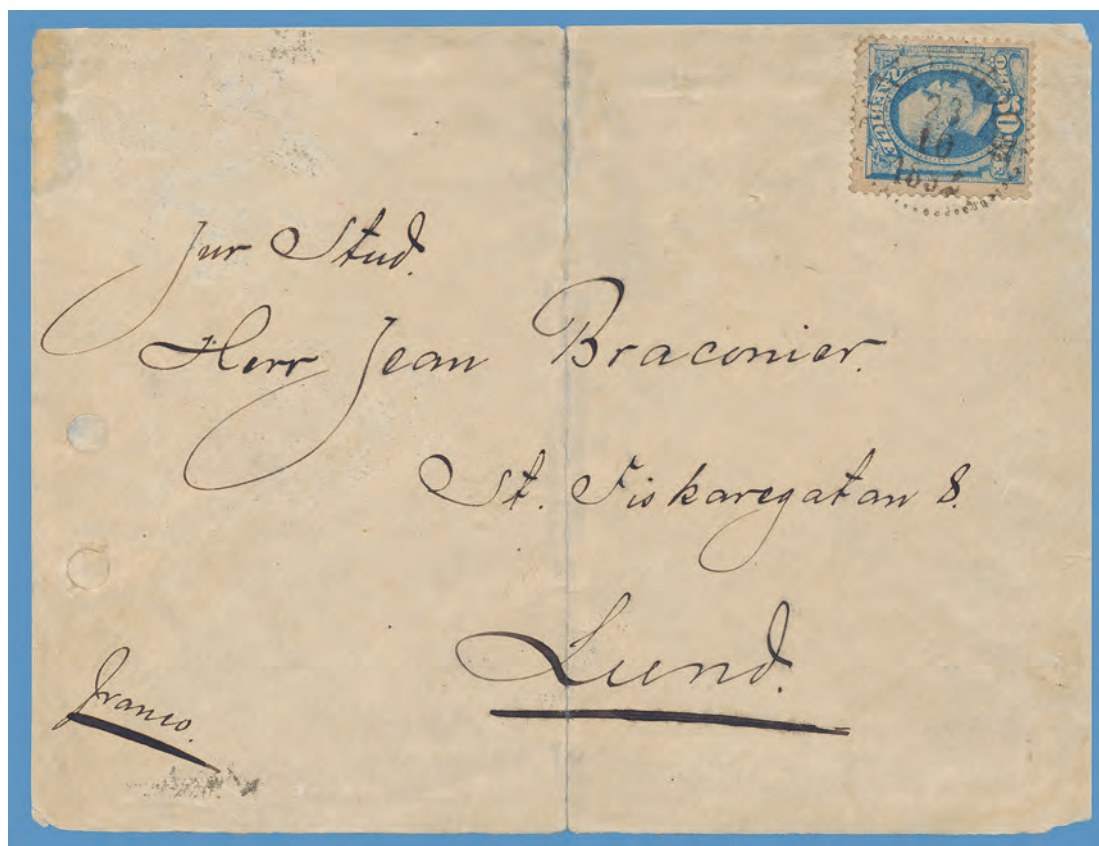 SVERIGE
23
10
1892
Jur Stud.
Herr Jean Braconier.
St. Fiskaregatan 8.
Lund.
Franco.